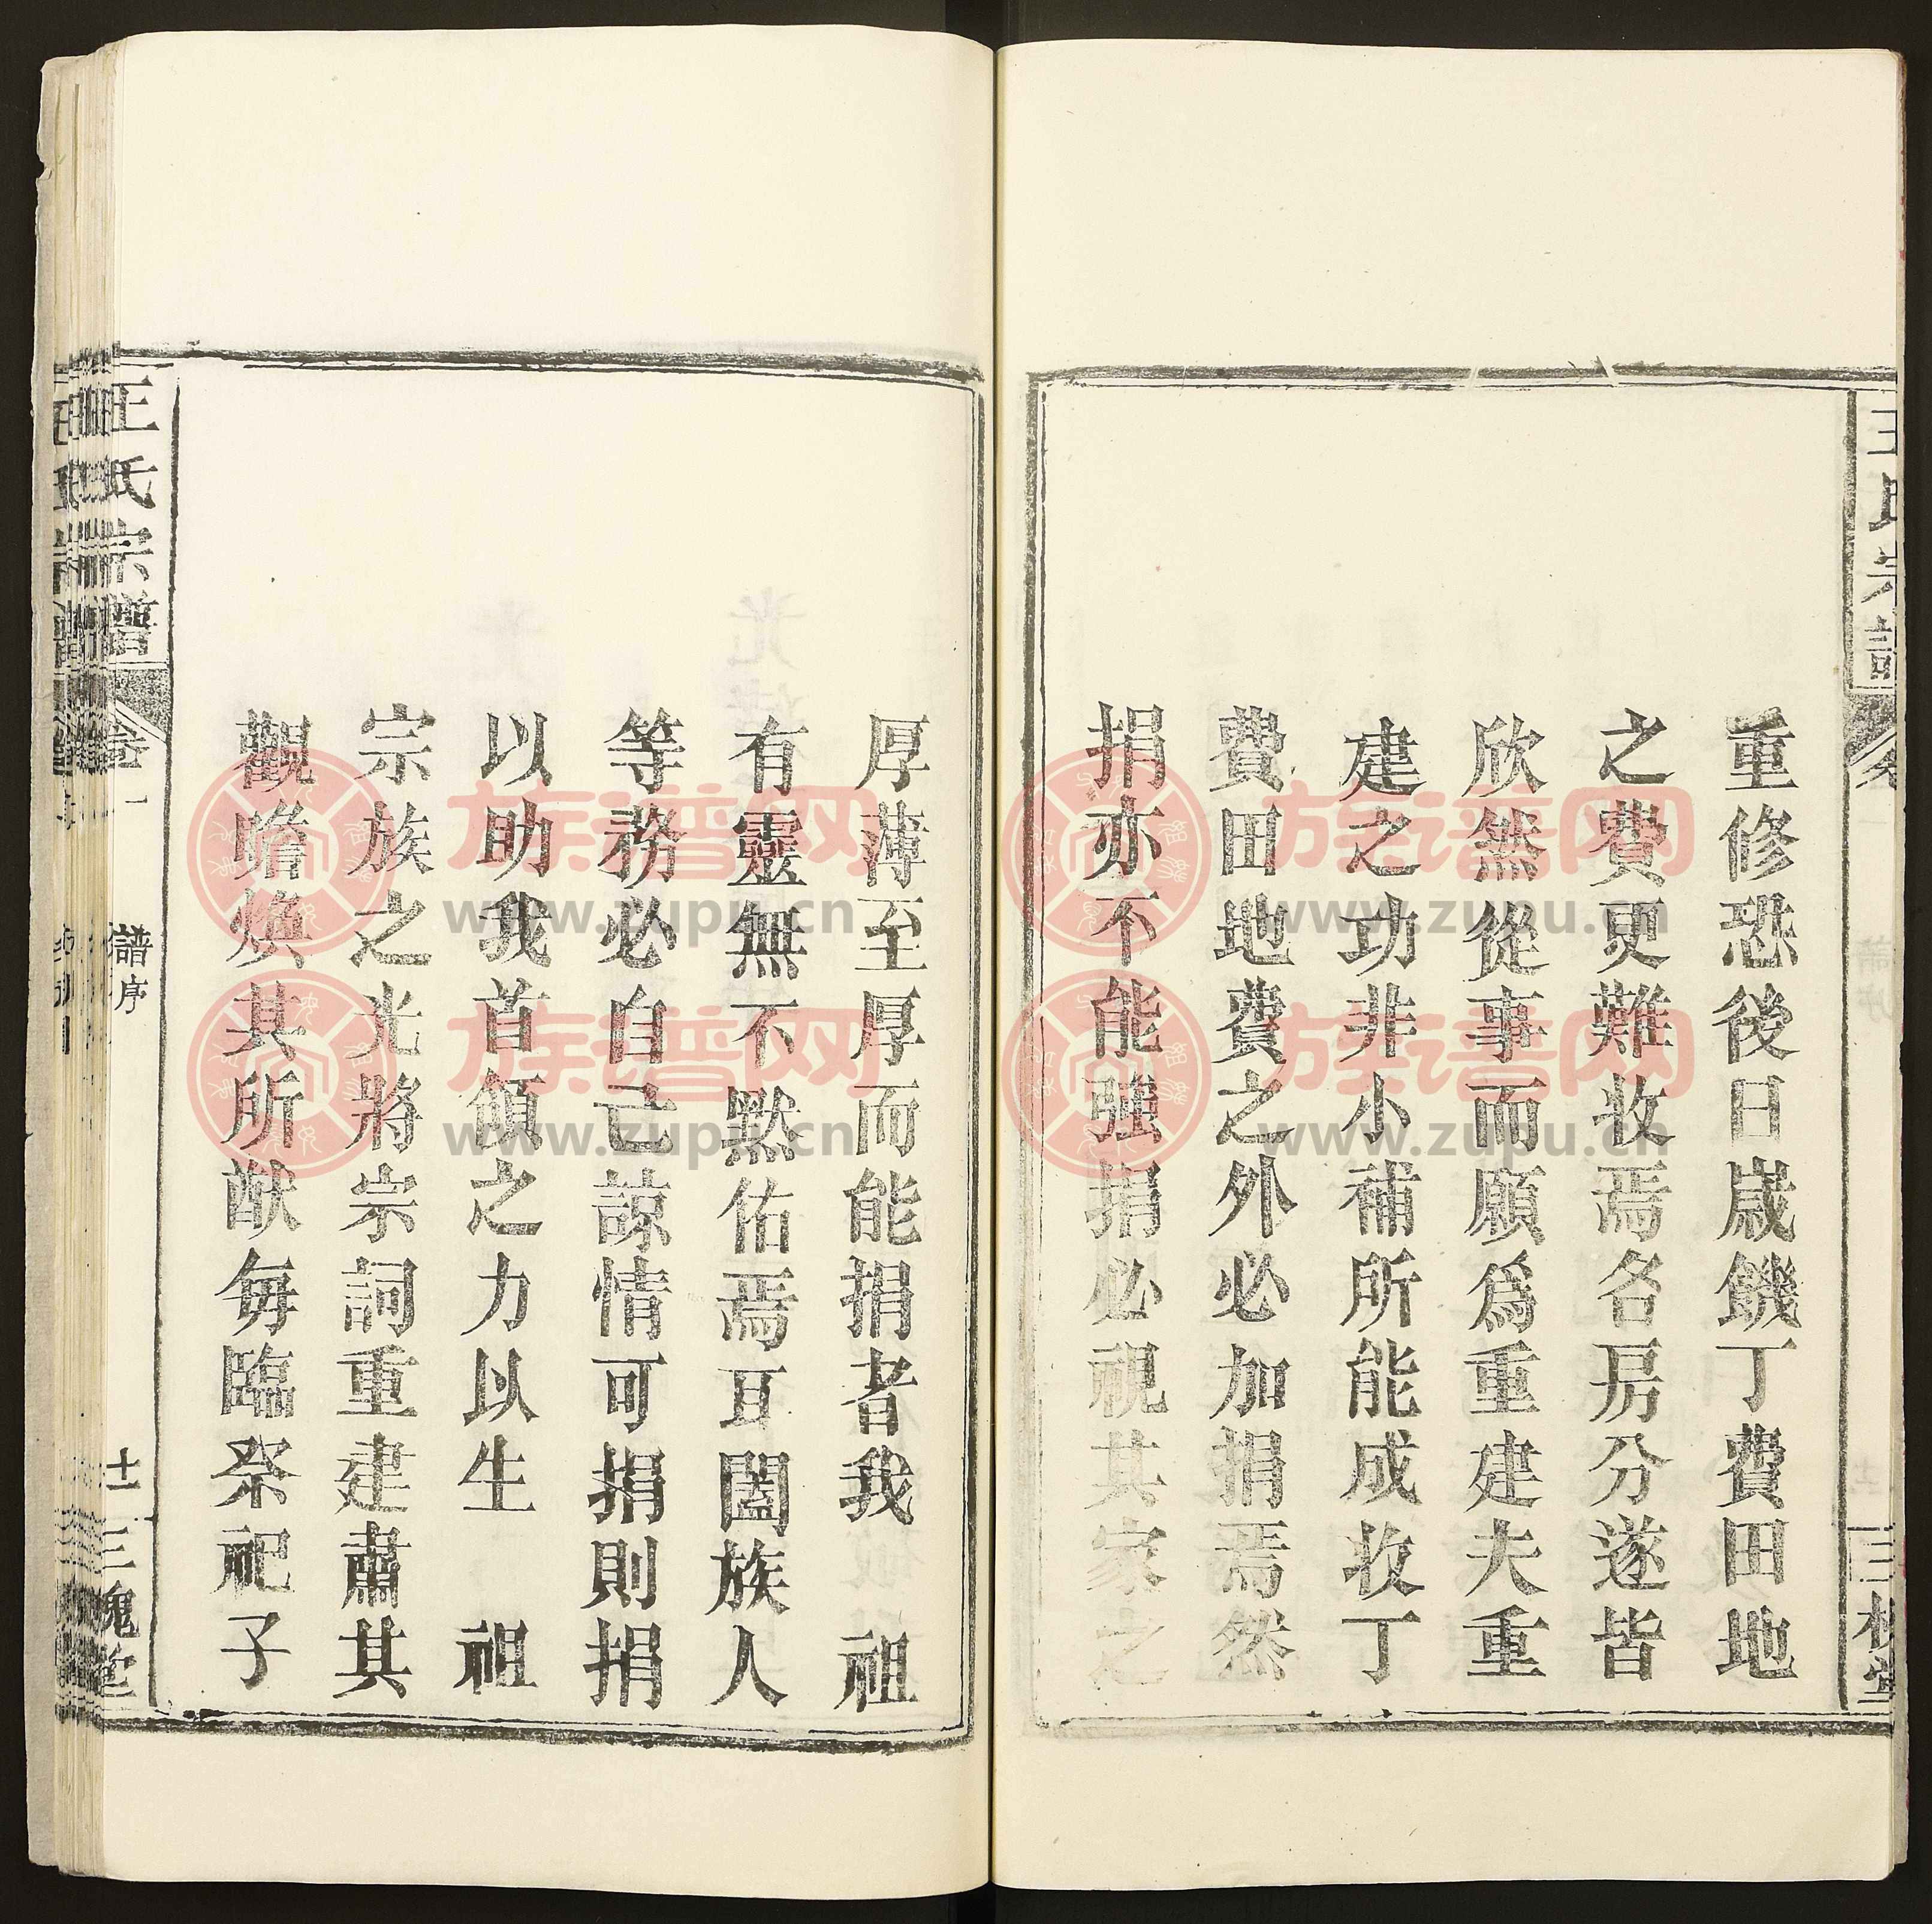 重修恐後日歲饑丁費田地
之費更難收焉各房分遂皆
欣然從事而願為重建夫重
建之功非小補所能成收丁
費田地費之外必加捐焉然
捐亦不能强捐必視其家之
厚薄至厚而能捐者我 祖
有靈無不默佑焉耳闔族人
等務必自己諒情可捐則捐
以助我首領之力以生 祖
宗族之光將宗詞重建肅其
觀瞻煥其所猷每臨祭祀子
王氏宗譜
卷一
譜序
十一
三槐堂
族谱网
www.zupu.cn
族谱网
www.zupu.cn
族谱网
www.zupu.cn
族谱网
www.zupu.cn